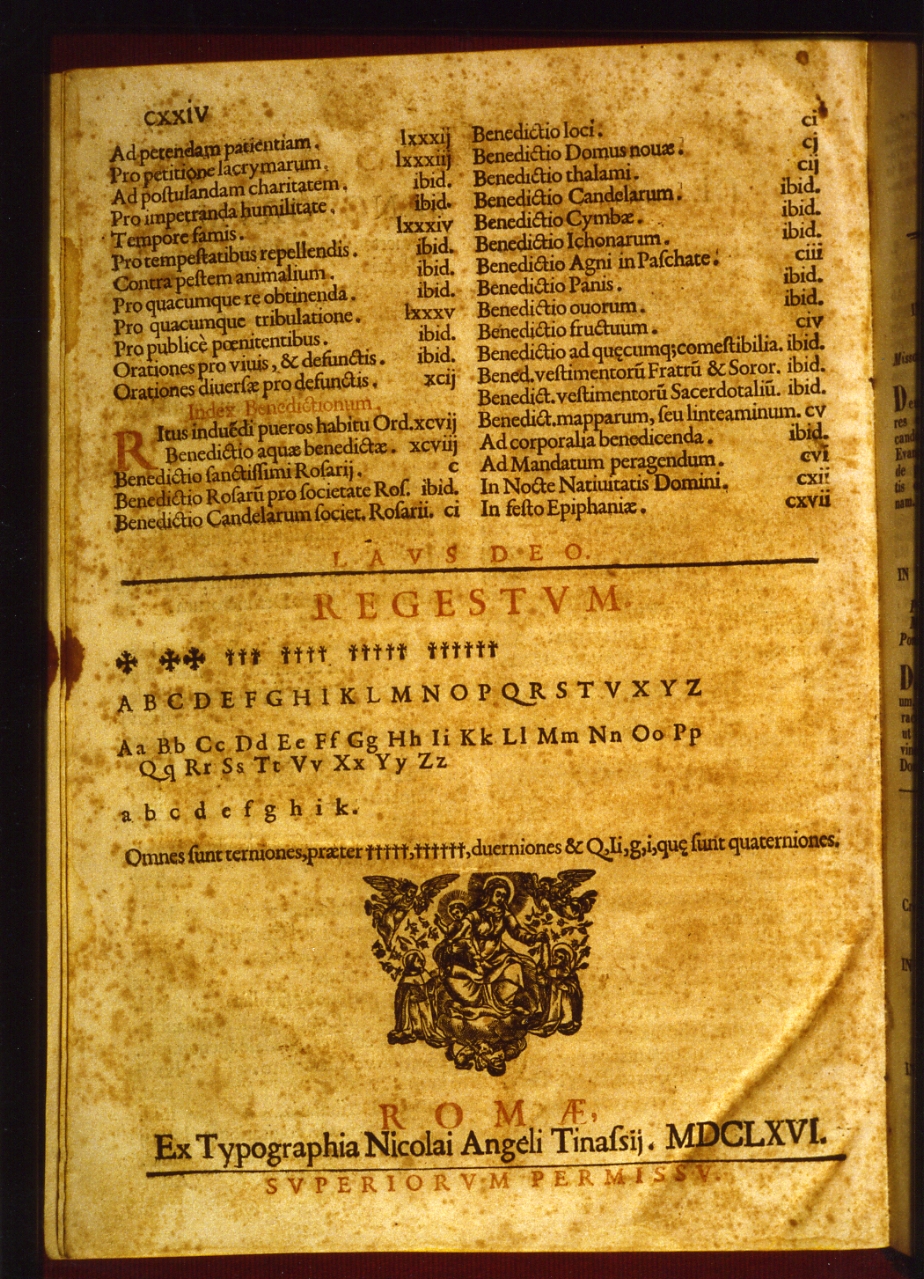 cxxiv
Ad petendam patientiam. lxxxij
Pro petitione lacrymarum. lxxxiij
Ad poſtulandam charitatem. ibid.
Pro impetranda humilitate. ibid.
Tempore famis. lxxxiv
Pro tempeſtatibus repellendis. ibid.
Contra peſtem animalium. ibid.
Pro quacumque re obtinenda. ibid.
Pro quacumque tribulatione. lxxxv
Pro publicè pœnitentibus. ibid.
Orationes pro viuis, & defunctis. ibid.
Orationes diuerſæ pro defunctis. xcij
Index Benedictionum.
Ritus induẽdi pueros habitu Ord. xcvij
Benedictio aquæ benedictæ. xcviij
Benedictio ſanctiſſimi Roſarij. c
Benedictio Roſarũ pro ſocietate Roſ. ibid.
Benedictio Candelarum ſociet. Roſarii. ci
Benedictio loci. ci
Benedictio Domus nouæ. cj
Benedictio thalami. cij
Benedictio Candelarum. ibid.
Benedictio Cymbæ. ibid.
Benedictio Ichonarum. ibid.
Benedictio Agni in Paſchate. ciii
Benedictio Panis. ibid.
Benedictio ouorum. ibid.
Benedictio fructuum. civ
Benedictio ad quęcumq; comeſtibilia. ibid.
Bened. veſtimentorũ Fratrũ & Soror. ibid.
Benedict. veſtimentorũ Sacerdotaliũ. ibid.
Benedict. mapparum, ſeu linteaminum. cv
Ad corporalia benedicenda. ibid.
Ad Mandatum peragendum. cvi
In Nocte Natiuitatis Domini. cxii
In feſto Epiphaniæ. cxvii
LAVS DEO.
REGESTVM.
✠ ✠✠ ††† †††† ††††† ††††††
A B C D E F G H I K L M N O P Q R S T V X Y Z
Aa Bb Cc Dd Ee Ff Gg Hh Ii Kk Ll Mm Nn Oo Pp
Qq Rr Ss Tt Vv Xx Yy Zz
a b c d e f g h i k.
Omnes ſunt terniones, præter †††††, ††††††, duerniones & Q, Ii, g, i, quę ſunt quaterniones.
ROMÆ,
Ex Typographia Nicolai Angeli Tinaſsij. MDCLXVI.
SVPERIORVM PERMISSV.